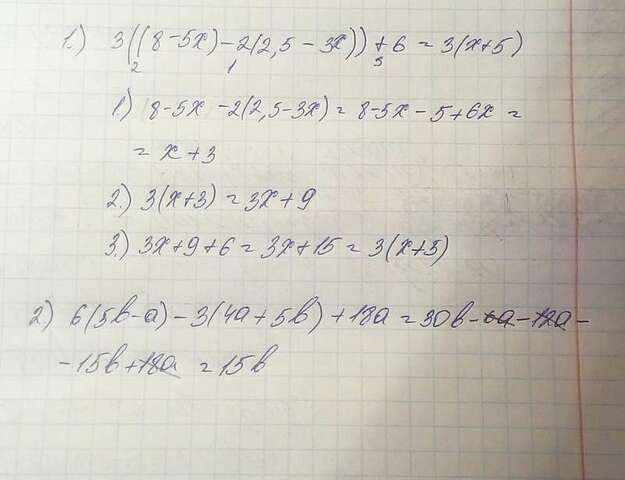 1.) 3((8-5x)-2(2,5-3x))+6=3(x+5)
2 1 3
1.) 8-5x -2(2,5-3x)=8-5x-5+6x=
= x+3
2.) 3(x+3)=3x+9
3.) 3x+9+6=3x+15=3(x+5)
2) 6(5b-a)-3(4a+5b)+18a=30b-6a-12a-
-15b+18a =15b